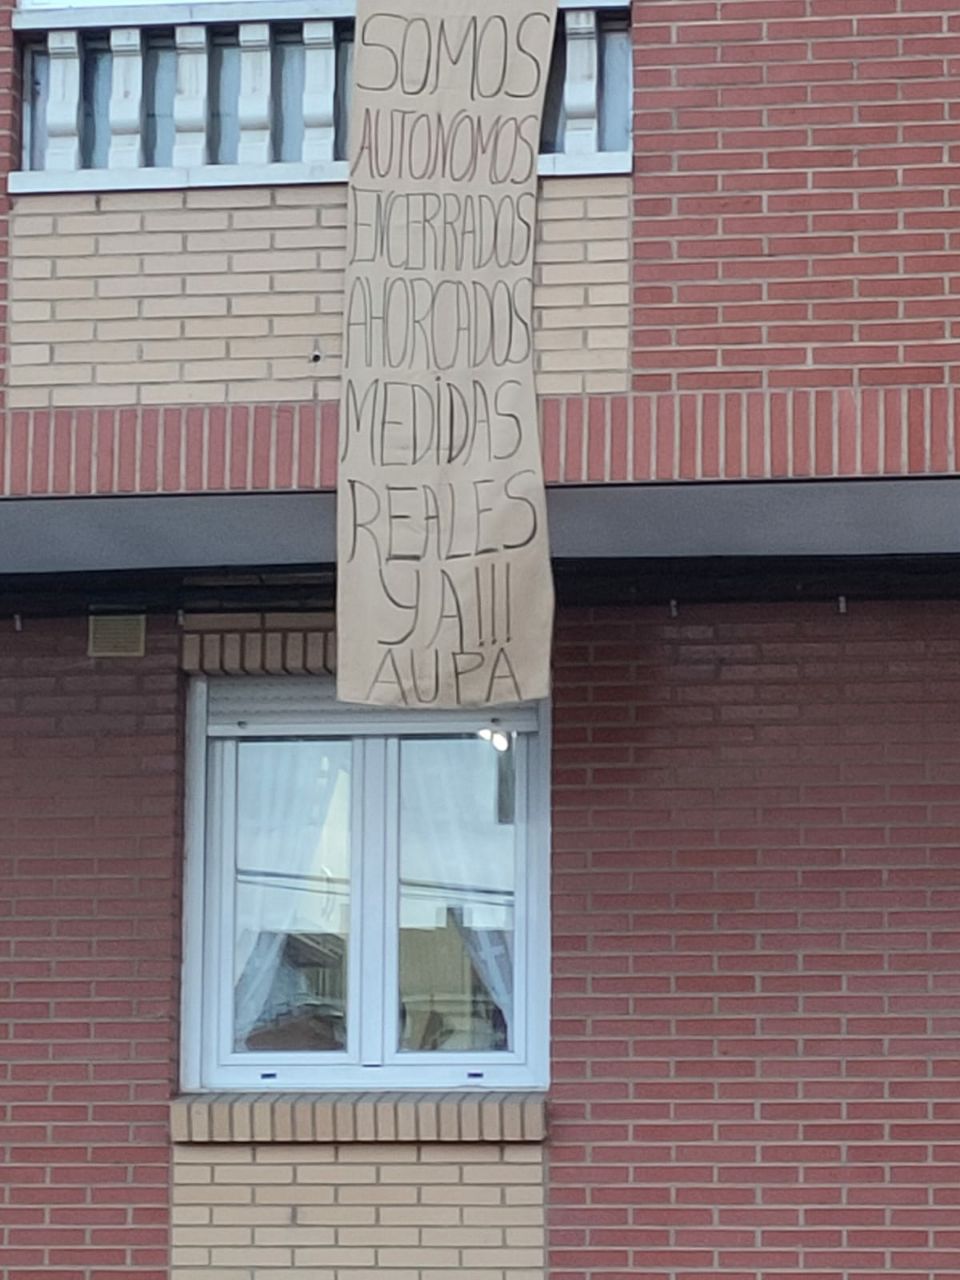 SOMOS
AUTONOMOS
ENCERRADOS
AHORCADOS
MEDIDAS
REALES
YA!!!
AUPA